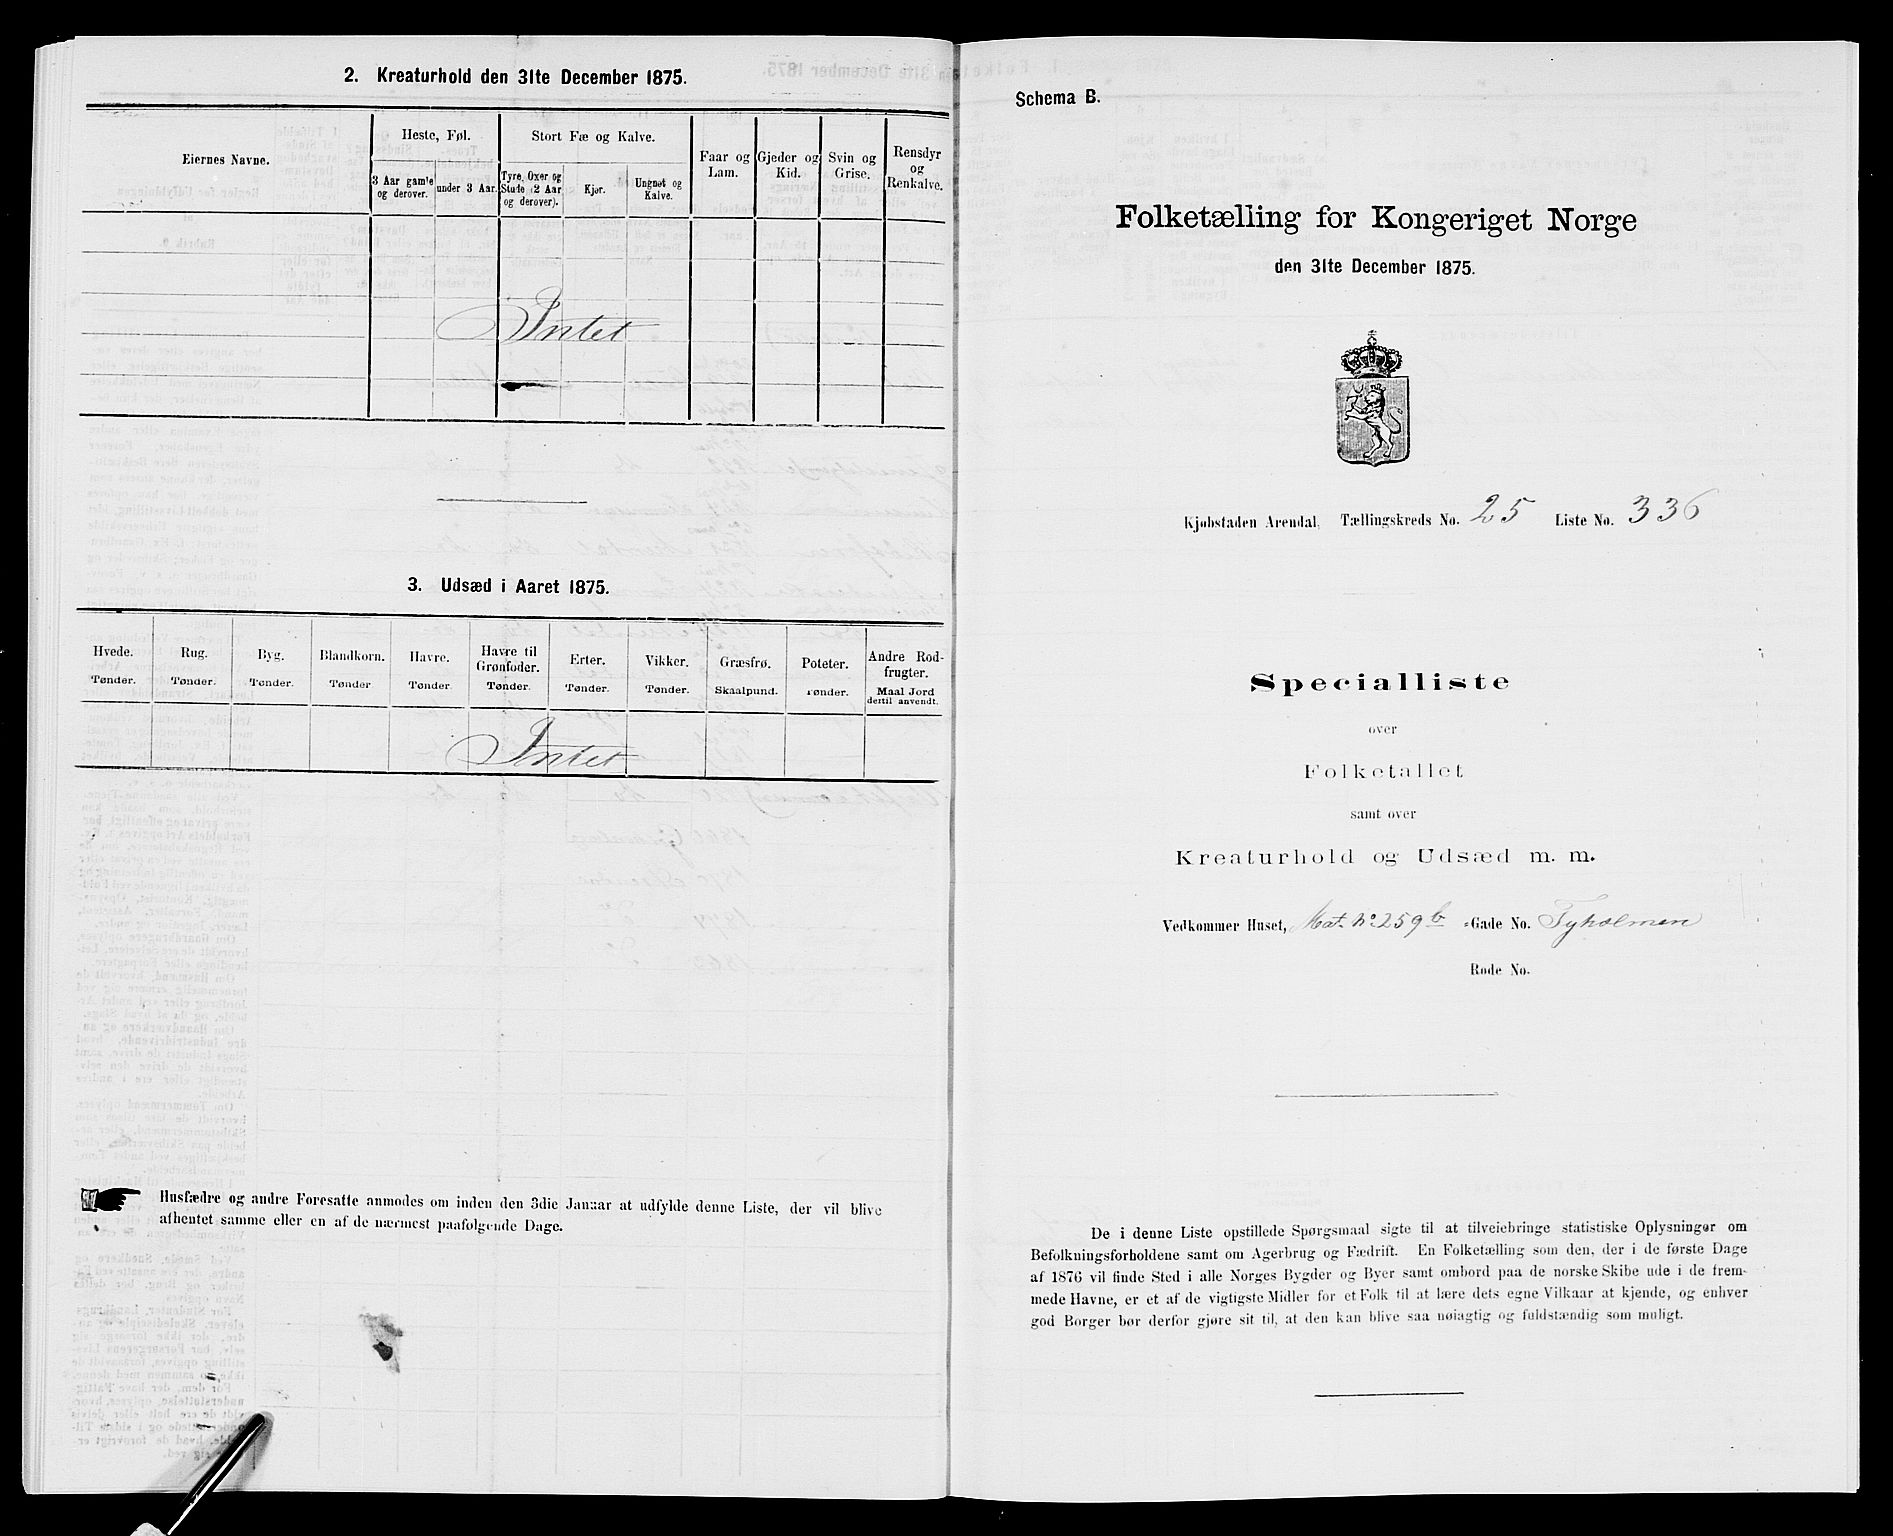 2. Kreaturhold den 31te December 1875.
Eiernes Navne.
Heste, Føl.
3 Aar gamle og derover.
under 3 Aar.
Stort Fæ og Kalve.
Tyre, Oxer og Stude (2 Aar og derover).
Kjør.
Ungnøt og Kalve.
Faar og Lam.
Gjeder og Kid.
Svin og Grise.
Rensdyr og Renkalve.
Intet
3. Udsæd i Aaret 1875.
Hvede. Tønder.
Rug. Tønder.
Byg. Tønder.
Blandkorn. Tønder
Havre. Tønder.
Havre til Grønfoder. Tønder.
Erter. Tønder.
Vikker. Tønder.
Græsfrø. Skaalpund.
Poteter. Tønder.
Andre Rodfrugter. Maal Jord dertil anvendt.
Intet
Husfædre og andre Foresatte anmodes om inden den 3die Januar at udfylde denne Liste, der vil blive
afhentet samme eller en af de nærmest paafølgende Dage.
Schema B.
Folketælling for Kongeriget Norge
den 31te December 1875.
Kjøbstaden Arendal, Tællingskreds No. 25 Liste No. 336
Specialliste
over
Folketallet
samt over
Kreaturhold og Udsæd m. m.
Vedkommer Huset, Mat. No 259b -Gade No. Tyholmen
Rode No.
De i denne Liste opstillede Spørgsmaal sigte til at tilveiebringe statistiske Oplysninger om
Befolkningsforholdene samt om Agerbrug og Fædrift. En Folketælling som den, der i de første Dage
af 1876 vil finde Sted i alle Norges Bygder og Byer samt ombord paa de norske Skibe ude i de frem-
mede Havne, er et af de vigtigste Midler for et Folk til at lære dets egne Vilkaar at kjende, og enhver
god Borger bør derfor gjøre sit til, at den kan blive saa nøiagtig og fuldstændig som muligt.